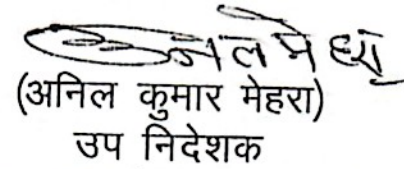 (अनिल कुमार मेहरा)
उप निदेशक